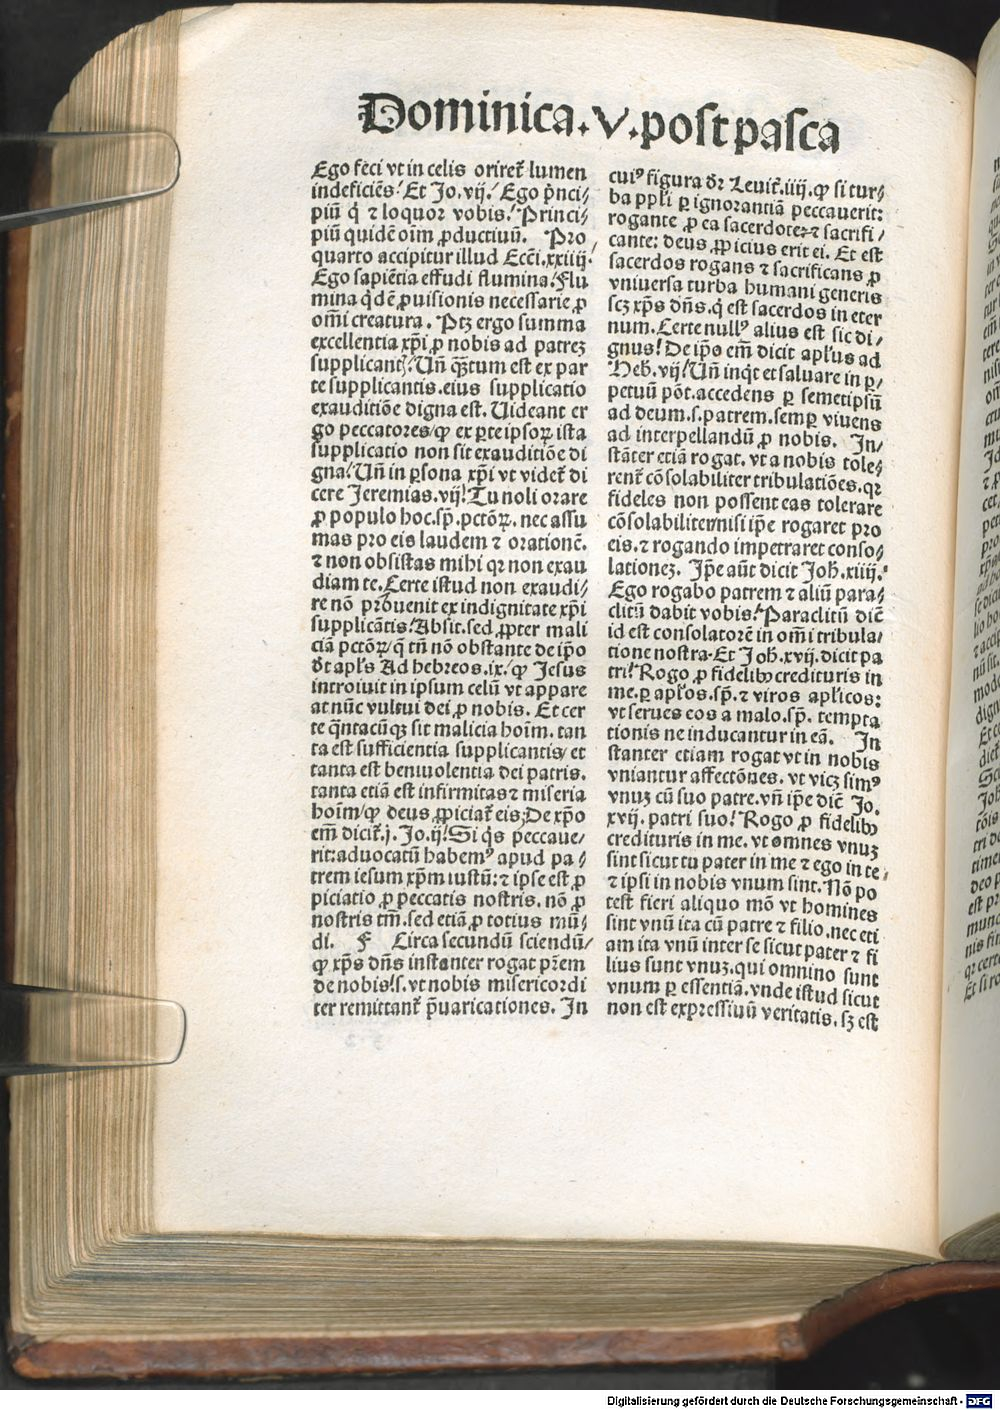 Dominica.V.post pasca
Ego feci vt in celis oriret̃ lumen
indeficiẽs! Et Jo.vij.! Ego p̃nci⸗
piũ q̇ ⁊ loquor vobis.! Princi⸗
piũ quidẽ oĩm ꝓductiuũ. Pro
quarto accipitur illud Ecc̃i.xxiiij.
Ego sapiẽtia effudi flumina.! Flu
mina q̇dẽ ꝓuisionis necessarie ꝓ
om̃i creatura. Ptꝫ ergo summa
excellentia xp̃i ꝓ nobis ad patreꝫ
supplicantꝭ.! Uñ q̃ꝫtum est ex par
te supplicantis.eius supplicatio
exauditiõe digna est. Uideant er
go peccatores/ꝙ ex ꝑte ipsoꝝ ista
supplicatio non sit exauditiõe di
gna! Uñ in ꝑsona xp̃i vt videt̃ di
cere Jeremias.vij! Tu noli orare
ꝓ populo hoc.sp̃.pctõꝝ.nec assu
mas pro eis laudem ⁊ orationẽ.
⁊ non obsistas mihi qꝛ non exau
diam te. Certe istud non exaudi⸗
re nõ prouenit ex indignitate xp̃i
supplicãtis! Absit.sed ꝓpter mali
ciã pctõꝝ/q̃ tñ nõ obstante de ip̃o
dt apl̃s Ad hebreos.ix.! ꝙ Jesus
introiuit in ipsum celũ vt appare
at nũc vultui dei ꝓ nobis. Et cer
te q̃ntacũqꝫ sit malicia hoĩm.tan
ta est sufficientia supplicantis/ et
tanta est beniuolentia dei patris.
tanta etiã est infirmitas ⁊ miseria
hoĩm/ꝙ deus ꝓpiciat̃ eis; De xp̃o
em̃ dicit̃.j.Jo.ij! Si q̇s peccaue⸗
rit:aduocatũ habemꝰ apud pa⸗
trem iesum xp̃m iustũ:⁊ ipse est ꝓ
piciatio ꝓ peccatis nostris.nõ ꝓ
nostris tm̃.sed etiã ꝓ totius mũ⸗
di. F Circa secundũ sciendũ/
ꝙ xp̃s dñs instanter rogat pr̃em
de nobis!s.vt nobis misericordi
ter remittant̃ p̃uaricationes. In
cuiꝰ figura dꝛ Leuit̃.iiij.ꝙ si tur⸗
ba ppl̃i ꝑ ignorantiã peccauerit:
rogante ꝓ ea sacerdote:⁊ sacrifi⸗
cante: deus ꝓpicius erit ei. Et est
sacerdos rogans ⁊ sacrificans ꝓ
vniuersa turba humani generis
scꝫ xp̃s dñs.q̇ est sacerdos in eter
num. Certe nullꝰ alius est sic di⸗
gnus! De ip̃o em̃ dicit apl̃us ad
Heb̃.vij! Uñ inq̇t et saluare in ꝑ⸗
petuũ põt.accedens ꝑ semetipsũ
ad deum.s.patrem.semꝑ viuens
ad interpellandũ ꝓ nobis. In⸗
stãter etiã rogat.vt a nobis tole⸗
rent̃ cõsolabiliter tribulatiões.qꝛ
fideles non possent eas tolerare
cõsolabiliter/nisi ip̃e rogaret pro
eis.⁊ rogando impetraret conso⸗
lationeꝫ. Ip̃e aũt dicit Joh̃.xiiij.
Ego rogabo patrem ⁊ aliũ para⸗
clitũ dabit vobis! Paraclitũ dic̃
id est consolatorẽ in om̃i tribula⸗
tione nostra.Et Joh̃.xvij.dicit pa
tri! Rogo ꝓ fidelibꝫ credituris in
me.ꝑ apl̃os.sp̃.⁊ viros apl̃icos:
vt serues eos a malo.sp̃. tempta
tionis ne inducantur in eã. In
stanter etiam rogat vt in nobis
vniantur affectões.vt vicꝫ simꝰ
vnuꝫ cũ suo patre.vñ ip̃e dic̃ Jo.
xvij. patri suo! Rogo ꝓ fidelibꝫ
credituris in me.vt omnes vnuꝫ
sint sicut tu pater in me ⁊ ego in te⸗
⁊ ipsi in nobis vnum sint. Nõ po
test fieri aliquo mõ vt homines
sint vnũ ita cũ patre ⁊ filio.nec eti
am ita vnũ inter se sicut pater ⁊ fi
lius sunt vnuꝫ.qui omnino sunt
vnum ꝑ essentiã.vnde istud sicut
non est expressiuũ veritatis.sꝫ est
Digitalisierung gefördert durch die Deutsche Forschungsgemeinschaft - DFG